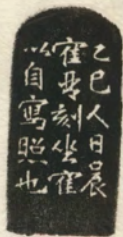 乙巳人日晨
寉母刻坐寉
以自寫照也